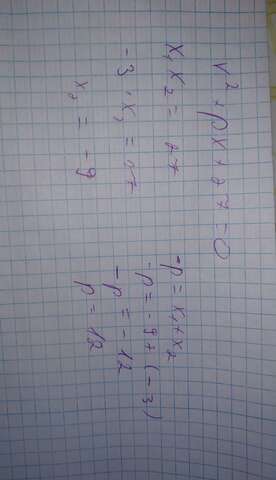 x² + px + 27 = 0
x₁ x₂ = 27
-3 · x₂ = 27
x₂ = -9
-p = x₁ + x₂
-p = -9 + (-3)
-p = -12
p = 12